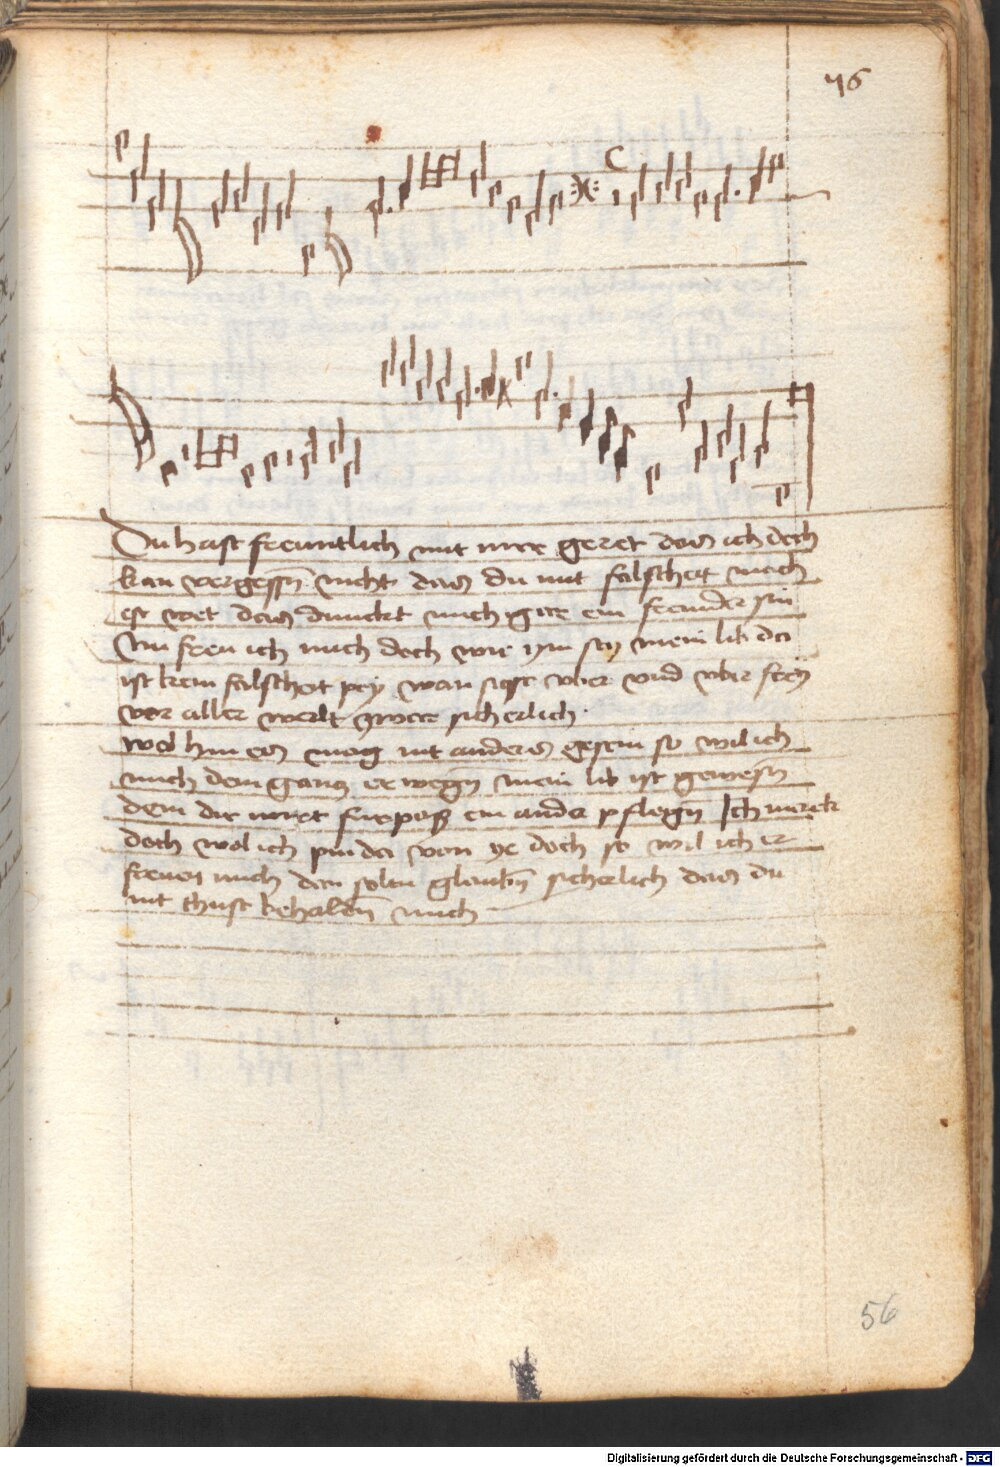 76
C
Du hast freuntlich mit mir geret das ich doch
kan vergessn nicht das du mit falscheit mich
das dunckt mich gar ein
freu ich mich doch wie ym sey mein lib da
ist kein falscheit pey wan sage vber vnd vbir frey
vor aller werlt sicherlich
wol hin es mag nit anders gesein so wil ich
mich dein gantz er wegn mein lib ist gewesn
dem die wirt furpaß ein ander pflegn Ich merck
doch wol ich pin da von yr doch so wil ich er
freuen mich den soltu glaubn sicherlich das du
nit thust behaldn mich
56
Digitalisierung gefördert durch die Deutsche Forschungsgemeinschaft - DFG